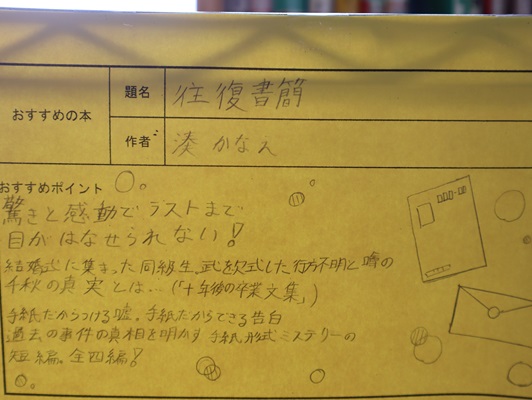 おすすめの本
題名
往復書簡
作者
湊かなえ
おすすめポイント
驚きと感動でラストまで
目がはなせられない!
結婚式に集まった同級生。式を欠式した行方不明と噂の
千秋の真実とは…(「十年後の卒業文集」)
手紙だからつける嘘。手紙だからできる告白
過去の事件の真相を明かす手紙形式ミステリーの
短編。全四編!